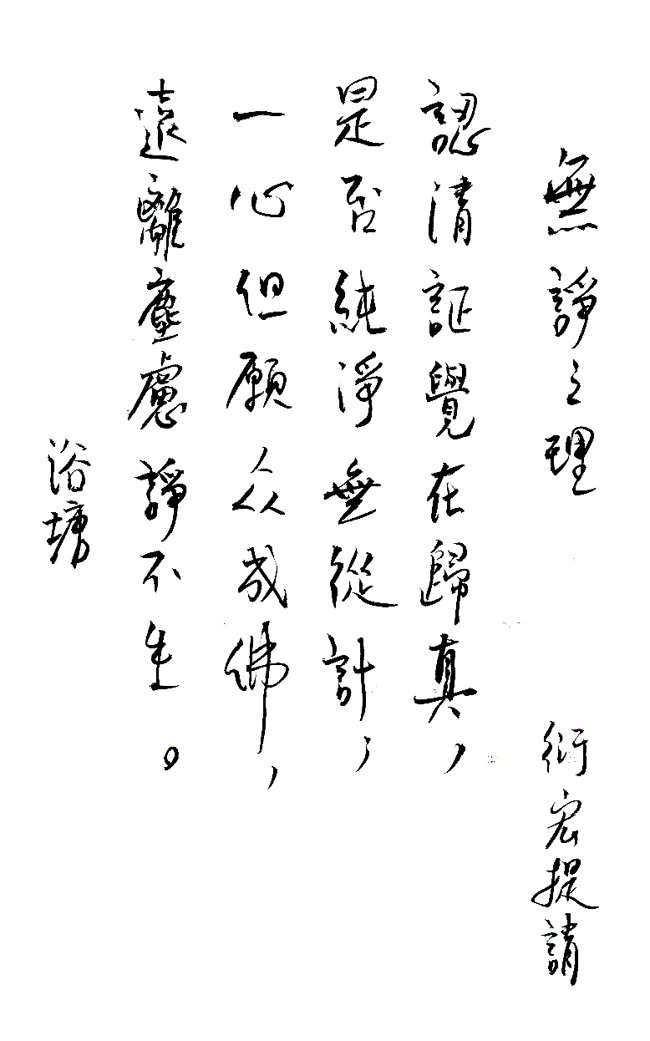 無諍之理
衍宏提請
認清証覺在歸真，
是否純淨無從計，
一心但願众成佛，
遠離塵慮諍不生。
浴塘